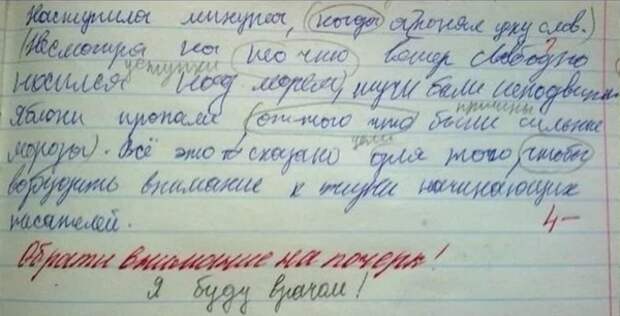 Наступила минута, (когда я понял цену слов.)
(Несмотря на то что ветер свободно
уступки
носился над морем) тучи были неподвижны
причины
Яблони пропали (оттого что были сильные
цели
морозы). Всё это я сказано для того, чтобы
возбудить внимание к жизни начинающих
писателей.
4-
Обрати внимание на почерк!
Я буду врачом!